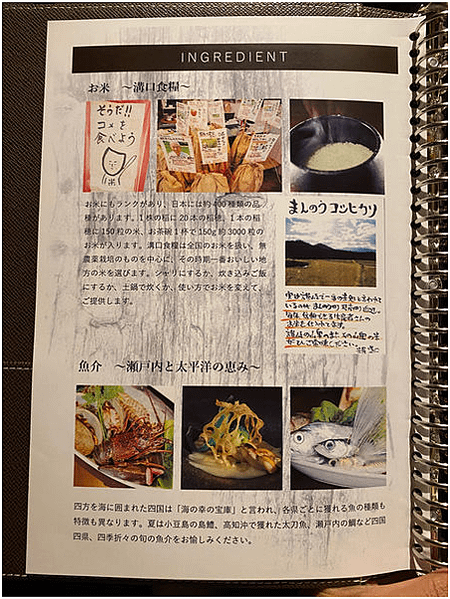 INGREDIENT
お米 〜溝口食糧〜
そうだ!!
コメを
食べよう
米
まんのうコシヒカリ
お米にもランクがあり、日本には約400種類の品
種があります。1株の稲に20本の稲穂、1本の稲
穂に150粒の米、お茶碗1杯で150g約3000粒
のお米が入ります。溝口食糧は全国のお米を扱い、無
農薬栽培のものを中心に、その時期一番おいしい地
方の米を選びます。シャリにするか、炊き込みご飯
にするか、土鍋で炊くか、使い方でお米を変えて、
ご提供します。
魚介 〜瀬戸内と太平洋の恵み〜
四方を海に囲まれた四国は「海の幸の宝庫」と言われ、各県ごとに獲れる魚の種類も
特徴も異なります。夏は小豆島の島鱧、高知沖で獲れた太刀魚、瀬戸内の鯛など四国
四県、四季折々の旬の魚介をお愉しみください。